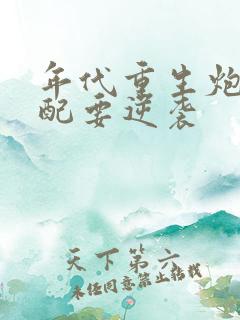 年代重生炮
配要逆袭
天下第六
未经同意禁止转载